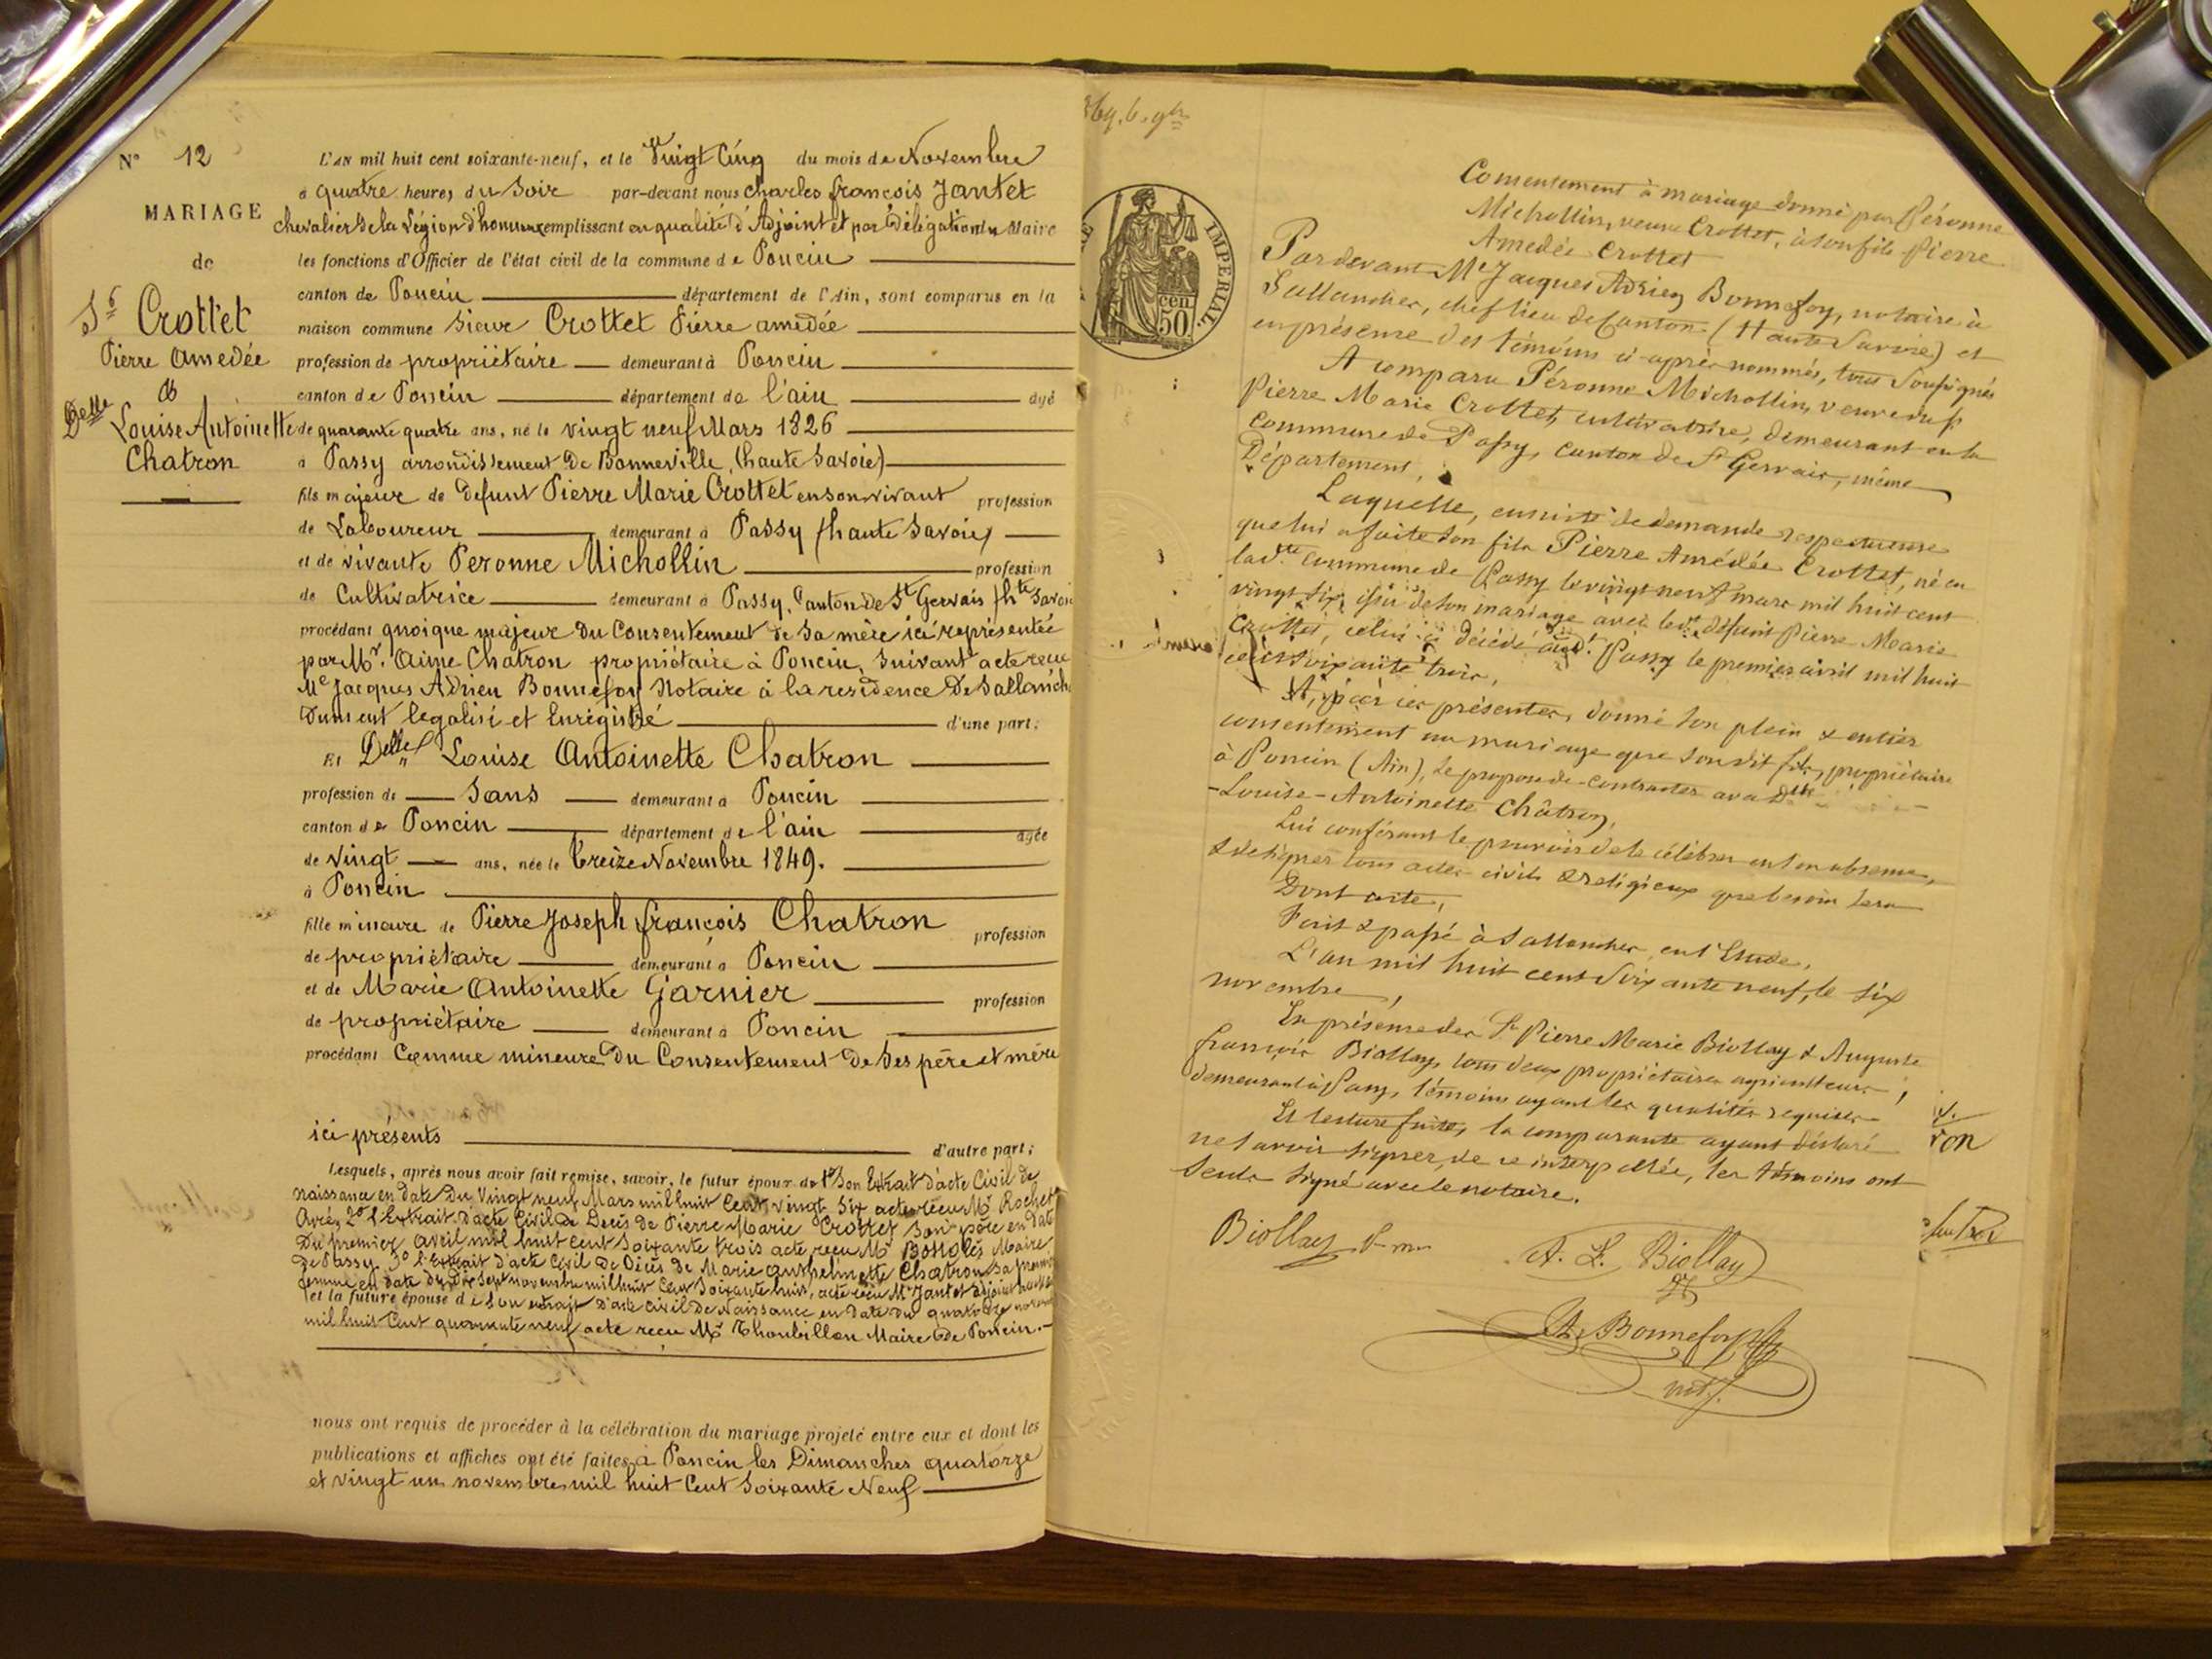 N° 12
MARIAGE
de
Sr Crottet
Pierre Amedée
&
Delle Louise Antoinette
Chatron
L'AN mil huit cent soixante-neuf, et le Vingt Cinq du mois de Novembre
à quatre heures du Soir par-devant nous Charles françois Jantet
chevalier de la Légion d'honneur remplissant en qualité d'Adjoint et par Délégation du Maire
les fonctions d'Officier de l'état civil de la commune de Poncin
canton de Poncin département de l'Ain, sont comparus en la
maison commune Sieur Crottet Pierre amedée
profession de propriétaire demeurant à Poncin
canton de Poncin département de l'ain âgé
de quarante quatre ans, né le vingt neuf Mars 1826
à Passy arrondissement de Bonneville (haute Savoie)
fils majeur de défunt Pierre Marie Crottet en son vivant profession
de Laboureur demeurant à Passy (haute Savoie)
et de vivante Peronne Michollin profession
de Cultivatrice demeurant à Passy, Canton de St Gervais (hte Savoie
procédant quoique majeur du Consentement de Sa mère ici représentée
par Mr. Aime Chatron propriétaire à Poncin, Suivant acte recu
Me Jacques Adrien Bonnefoy Notaire à la residence de Sallanch
Dument legalisé et Enregistré d'une part;
Et Delle Louise Antoinette Chatron
profession de Sans demeurant à Poncin
canton de Poncin département de l'ain agée
de vingt ans, née le treize Novembre 1849.
à Poncin
fille mineure de Pierre Joseph françois Chatron profession
de propriétaire demeurant à Poncin
et de Marie Antoinette Garnier profession
de propriétaire demeurant à Poncin
procédant Comme mineure du Consentement de Ses père et mère
ici présents d'autre part;
Lesquels, après nous avoir fait remise, savoir, le futur époux de 1° Son Extrait d'acte Civil de
naissance en date du Vingt neuf Mars mil huit Cent vingt Six acte recu Mr Rochet
2° l'Extrait d'acte Civil de Décès de Pierre Marie Crottet Son père en date
Du premier avril mil huit cent Soixante trois acte recu Mr Maire
de Passy 3° l'Extrait d'acte Civil de Décès de Marie anthelmette Chatron Sa
femme en date du dix Sept novembre mil huit Cent Soixante huit, acte recu Mr Jantet adjoint
et la future épouse de Son extrait d'acte civil de Naissance en date du quatorze
mil huit Cent quarante neuf acte recu Mr Thoubillon Maire de Poncin.
nous ont requis de procéder à la célébration du mariage projeté entre eux et dont les
publications et affiches ont été faites à Poncin les Dimanches quatorze
et vingt un novembre mil huit Cent Soixante Neuf
IMPERIAL.
50 cen
Consentement à mariage donné par Péronne
Michollin, veuve Crottet, à son fils Pierre
Amedée Crottet
Pardevant Me Jacques Adrien Bonnefoy, notaire à
Sallanches, chef lieu de Canton (Haute Savoie) et
en présence des témoins ci-après nommés, tous Soussignés
A comparu Péronne Michollin, veuve de f
Pierre Marie Crottet, cultivatrice, demeurant en la
Commune de Passy, canton de St Gervais, même
Département,
Laquelle, ensuite de demande respectueuse
que lui a faite son fils Pierre Amédée Crottet, né en
lad.te commune de Passy le vingt neuf mars mil huit cent
vingt six, issu de son mariage avec led.t défunt Pierre Marie
Crottet, celui ci décédé aud.t Passy le premier avril mil huit
cent soixante trois,
A, par ces présentes, donné son plein & entier
consentement au mariage que son dit fils, propriétaire
à Poncin (Ain), se propose de contracter avec Delle
-Louise-Antoinette Châtron,
Lui conférant le pouvoir de le célébrer en son absence,
& de signer tous actes civils & religieux que besoin sera
Dont acte,
Fait & passé à Sallanches, en l'Etude,
L'an mil huit cent Soixante neuf, le six
novembre,
En présence des Srs Pierre Marie Biollay & Auguste
François Biollay, tous deux propriétaires agriculteurs,
demeurant à Passy, témoins ayant les qualités requises
Et lecture faite, la comparante ayant déclaré
ne savoir signer, de ce interpellée, les témoins ont
Seuls Signé avec le notaire.
Biollay
A. F. Biollay
A. Bonnefoy
not.
ron